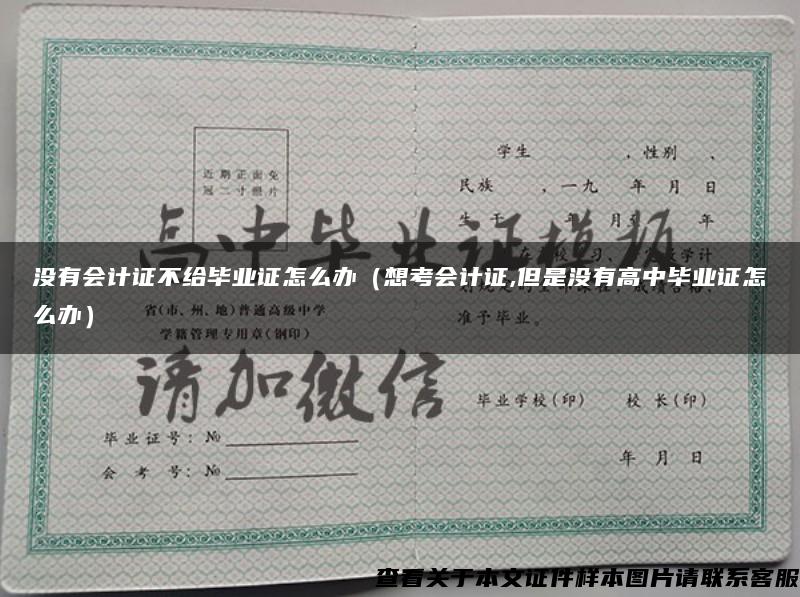 学生 ，性别 、
民族 ，一九 年 月 日
近期正面免
冠二寸照片
高中毕业证模板
没有会计证不给毕业证怎么办（想考会计证,但是没有高中毕业证怎
么办）
省(市、州、地)普通高级中学
学籍管理专用章(钢印)
准予毕业。
请加微信
毕业学校(印) 校长(印)
毕业证号：№
会考号：№
年 月 日
查看关于本文证件样本图片请联系客服